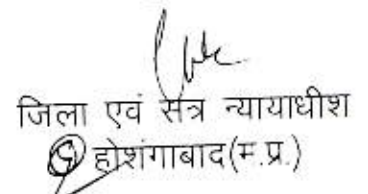 जिला एवं सत्र न्यायाधीश
होशंगाबाद(म.प्र.)